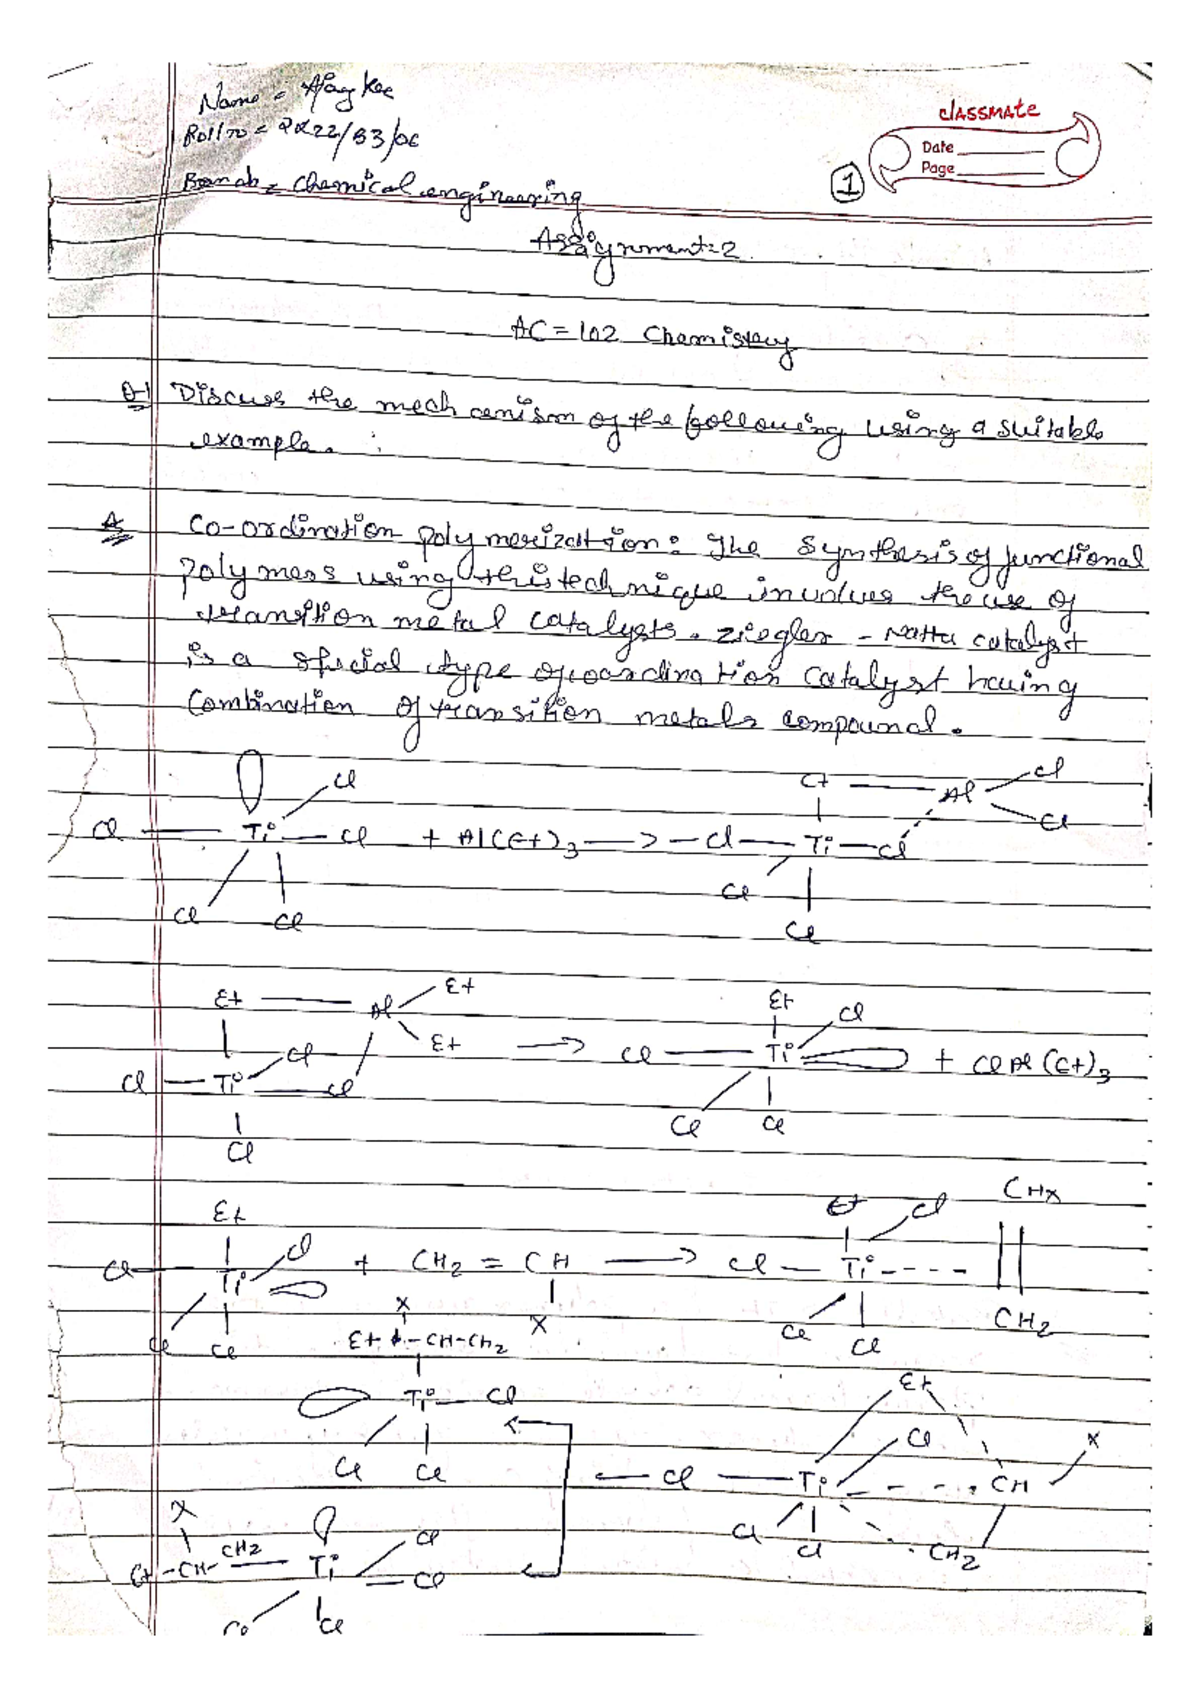 Name = Ajay Kee
Roll no = 2K22/B3/06
classmate
Date
Page
1
Branch = Chemical engineering
Assignment = 2
AC = 102 Chemistry
Q-1 Discuss the mechanism of the following using a suitable
example.
A Co-ordination polymerization: The synthesis of functional
polymers using this technique involves the use of
transition metal catalysts. Ziegler - Natta catalyst
is a special type of coordination catalyst having
Combination of transition metals compound.
Cl Et Al Cl
Cl Ti Cl + Al(Et)3 → Cl Ti Cl Cl
Cl Cl Cl Cl
Et Al Et Et Cl
Cl Et → Cl Ti + ClAl(Et)3
Cl Ti Cl Cl Cl
Cl
Et Et Cl CHX
Cl Ti Cl + CH2 = CH → Cl Ti CH2
Cl Cl X Cl Cl
X
Et CH-CH2 Et
Ti Cl Cl X
Cl Cl Cl Ti CH
X Cl Cl CH2
Et-CH-CH2 Ti Cl Cl
Cl